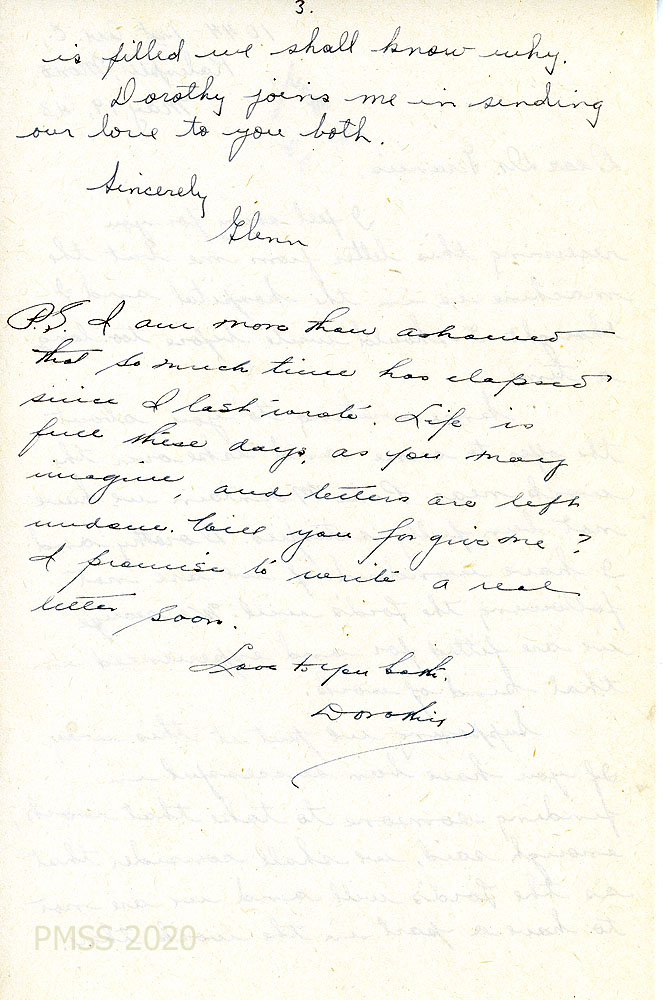 3.
is filled we shall know why.
Dorothy joins me in sending
our love to you both.
Sincerely
Glenn
P.S. I am more than ashamed
that so much time has elapsed
since I last wrote. Life is
full these days, as you may
imagine, and letters are left
undone. Will you forgive me?
I promise to write a real
letter soon.
Love to you both.
Dorothy
PMSS 2020